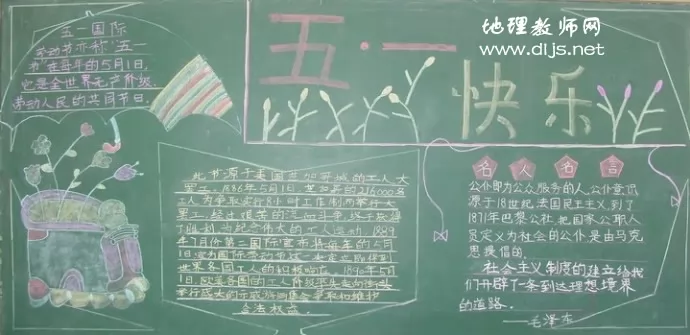 五一国际
劳动节亦称"五一
节"在每年的5月1日
它是全世界无产阶级、
劳动人民的共同节日.
五·一
快乐
地理教师网
www.dljs.net
此节源于美国芝加哥城的工人大
罢工.1886年5月1日,芝加哥的216000名
工人为争取实行8小时工作制而举行大
罢工,经过艰苦的流血斗争,终于取得
了胜利.为纪念伟大的工人运动,1889
年7月份第二国际宣布将每年的5月
1日定为国际劳动节.这一决定立即得到
世界各国工人的积极响应.1890年5月
1日,欧美各国的工人阶级率先走向街头
举行盛大的示威游行与集会,争取和维护
合法权益.
名人名言
公仆即为公众服务的人.公仆意识
源于18世纪法国民主主义,到了
1871年巴黎公社,把国家公职人
员定义为社会的公仆,是由马克
思提倡的.
社会主义制度的建立给我
们开辟了一条到达理想境界
的道路.
—毛泽东